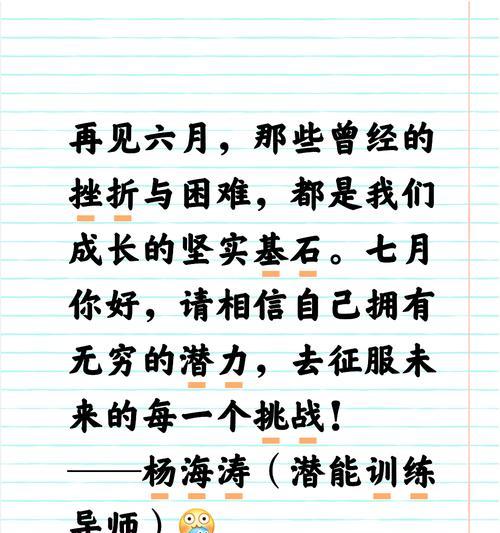 再见六月，那些曾经的
挫折与困难，都是我们
成长的坚实基石。七月
你好，请相信自己拥有
无穷的潜力，去征服未
来的每一个挑战！
——杨海涛（潜能训练
导师）